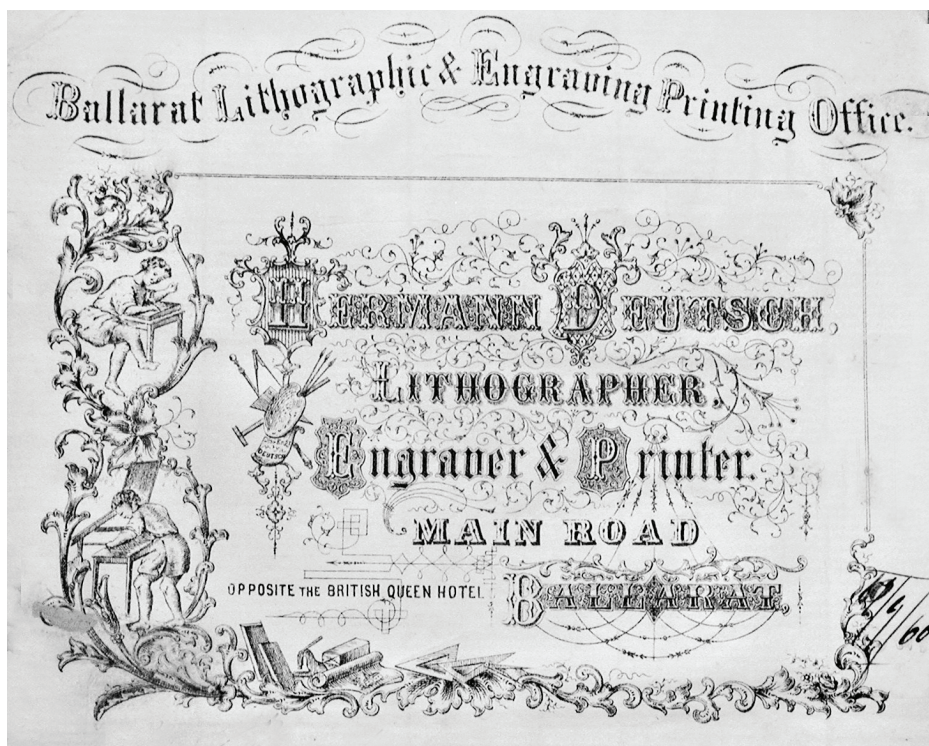 Ballarat Lithographic & Engraving Printing Office.
HERMANN DEUTSCH.
LITHOGRAPHER,
Engraver & Printer.
MAIN ROAD
OPPOSITE THE BRITISH QUEEN HOTEL
BALLARAT,